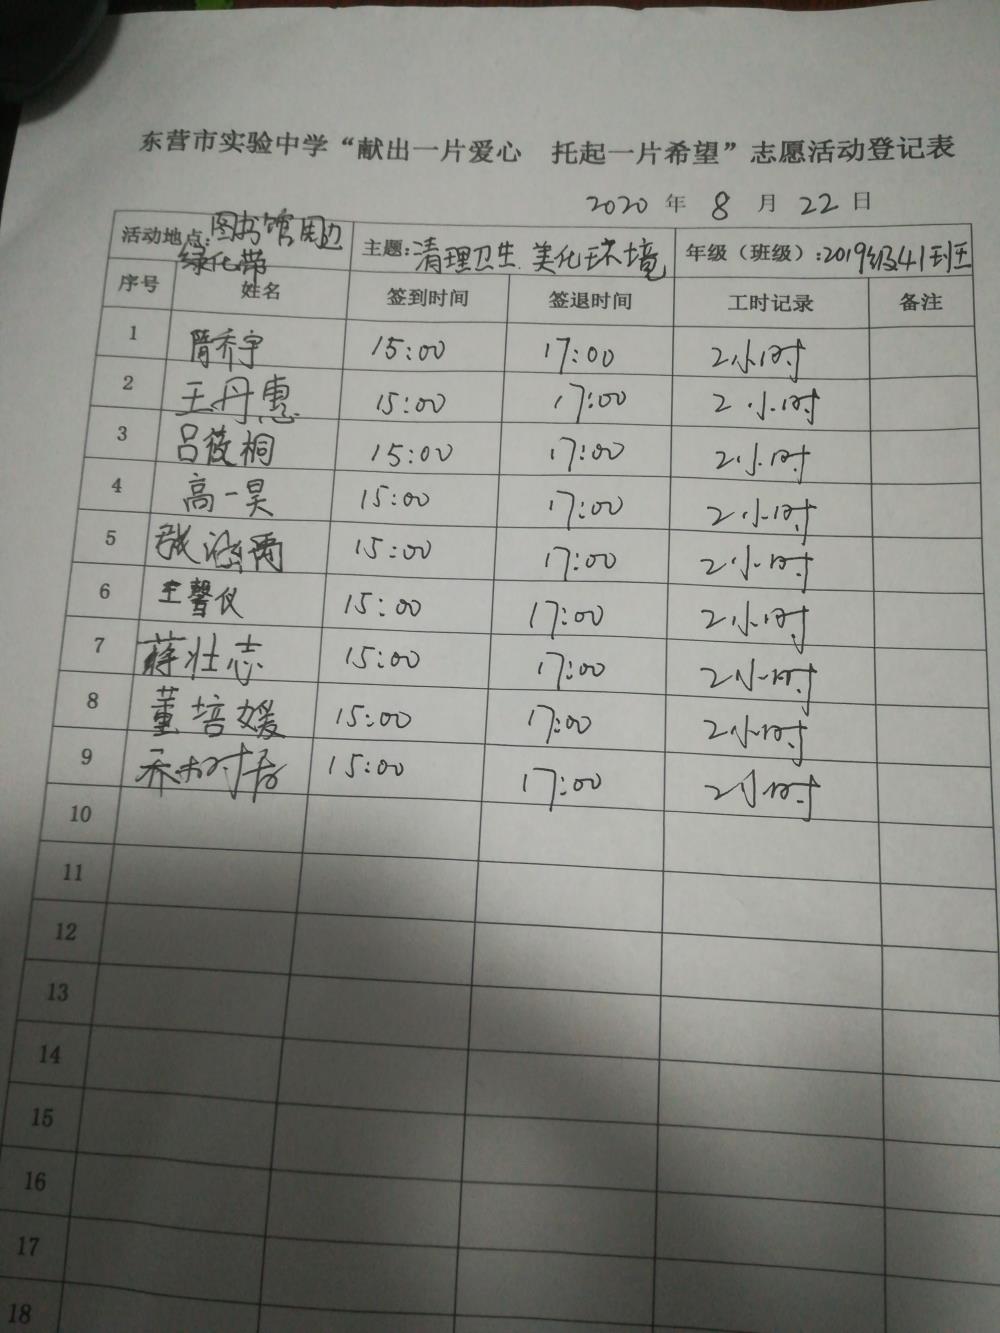 东营市实验中学“献出一片爱心 托起一片希望”志愿活动登记表
2020 年 8 月 22 日
活动地点:图书馆周边绿化带 主题:清理卫生 美化环境 年级（班级）:2019级41班
序号 姓名 签到时间 签退时间 工时记录 备注
1 隋乔宇 15:00 17:00 2小时
2 王丹惠 15:00 17:00 2小时
3 吕筱桐 15:00 17:00 2小时
4 高一昊 15:00 17:00 2小时
5 张涵雨 15:00 17:00 2小时
6 王馨仪 15:00 17:00 2小时
7 蒋壮志 15:00 17:00 2小时
8 董培媛 15:00 17:00 2小时
9 15:00 17:00 2小时
10
11
12
13
14
15
16
17
18